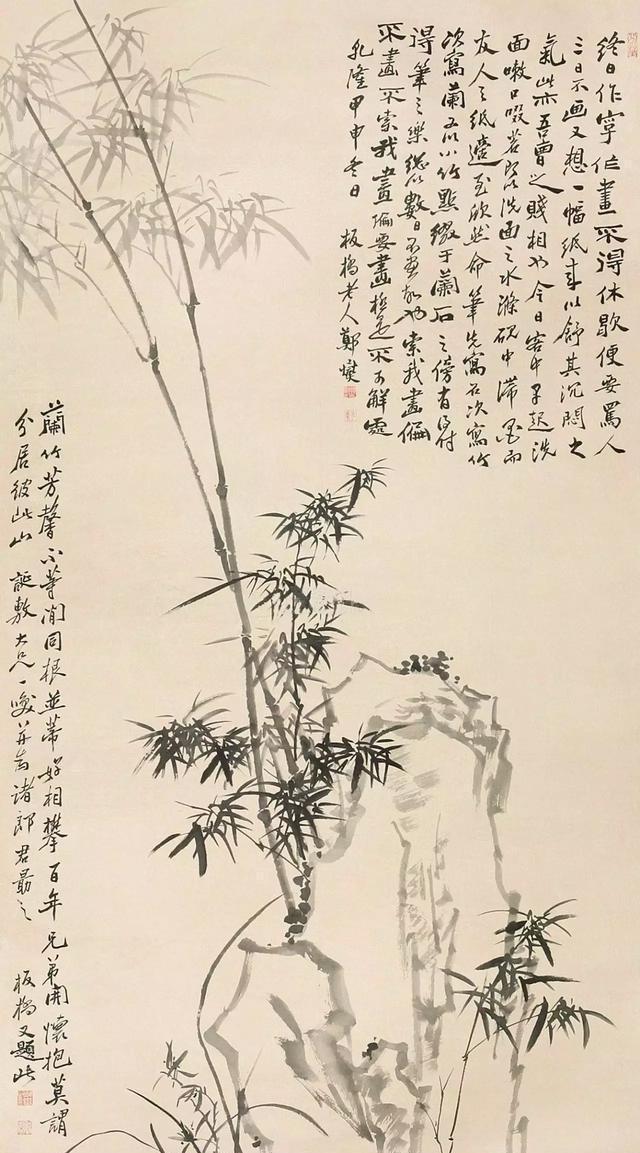 終日作字作畫不得休歇便要罵人
三日不画又想一幅紙來以舒其沉悶之
氣此亦吾曹之賤相也今日客中早起洗
面嗽口啜茗即以洗面之水滌硯中滯墨而
友人之紙適至欣然命筆先寫石次寫竹
次寫蘭又以小竹點綴于蘭石之傍甚
得筆之樂總以數日不畫故也索我畫偏
不畫不索我畫偏要畫極是不可解處
乾隆甲申冬日 板橋老人鄭燮
蘭竹芳馨不等閒同根並蒂好相攀百年兄弟開懷抱莫謂
分居彼此山 誕敷大兄一噱并為諸郎君勗之
板橋又題此